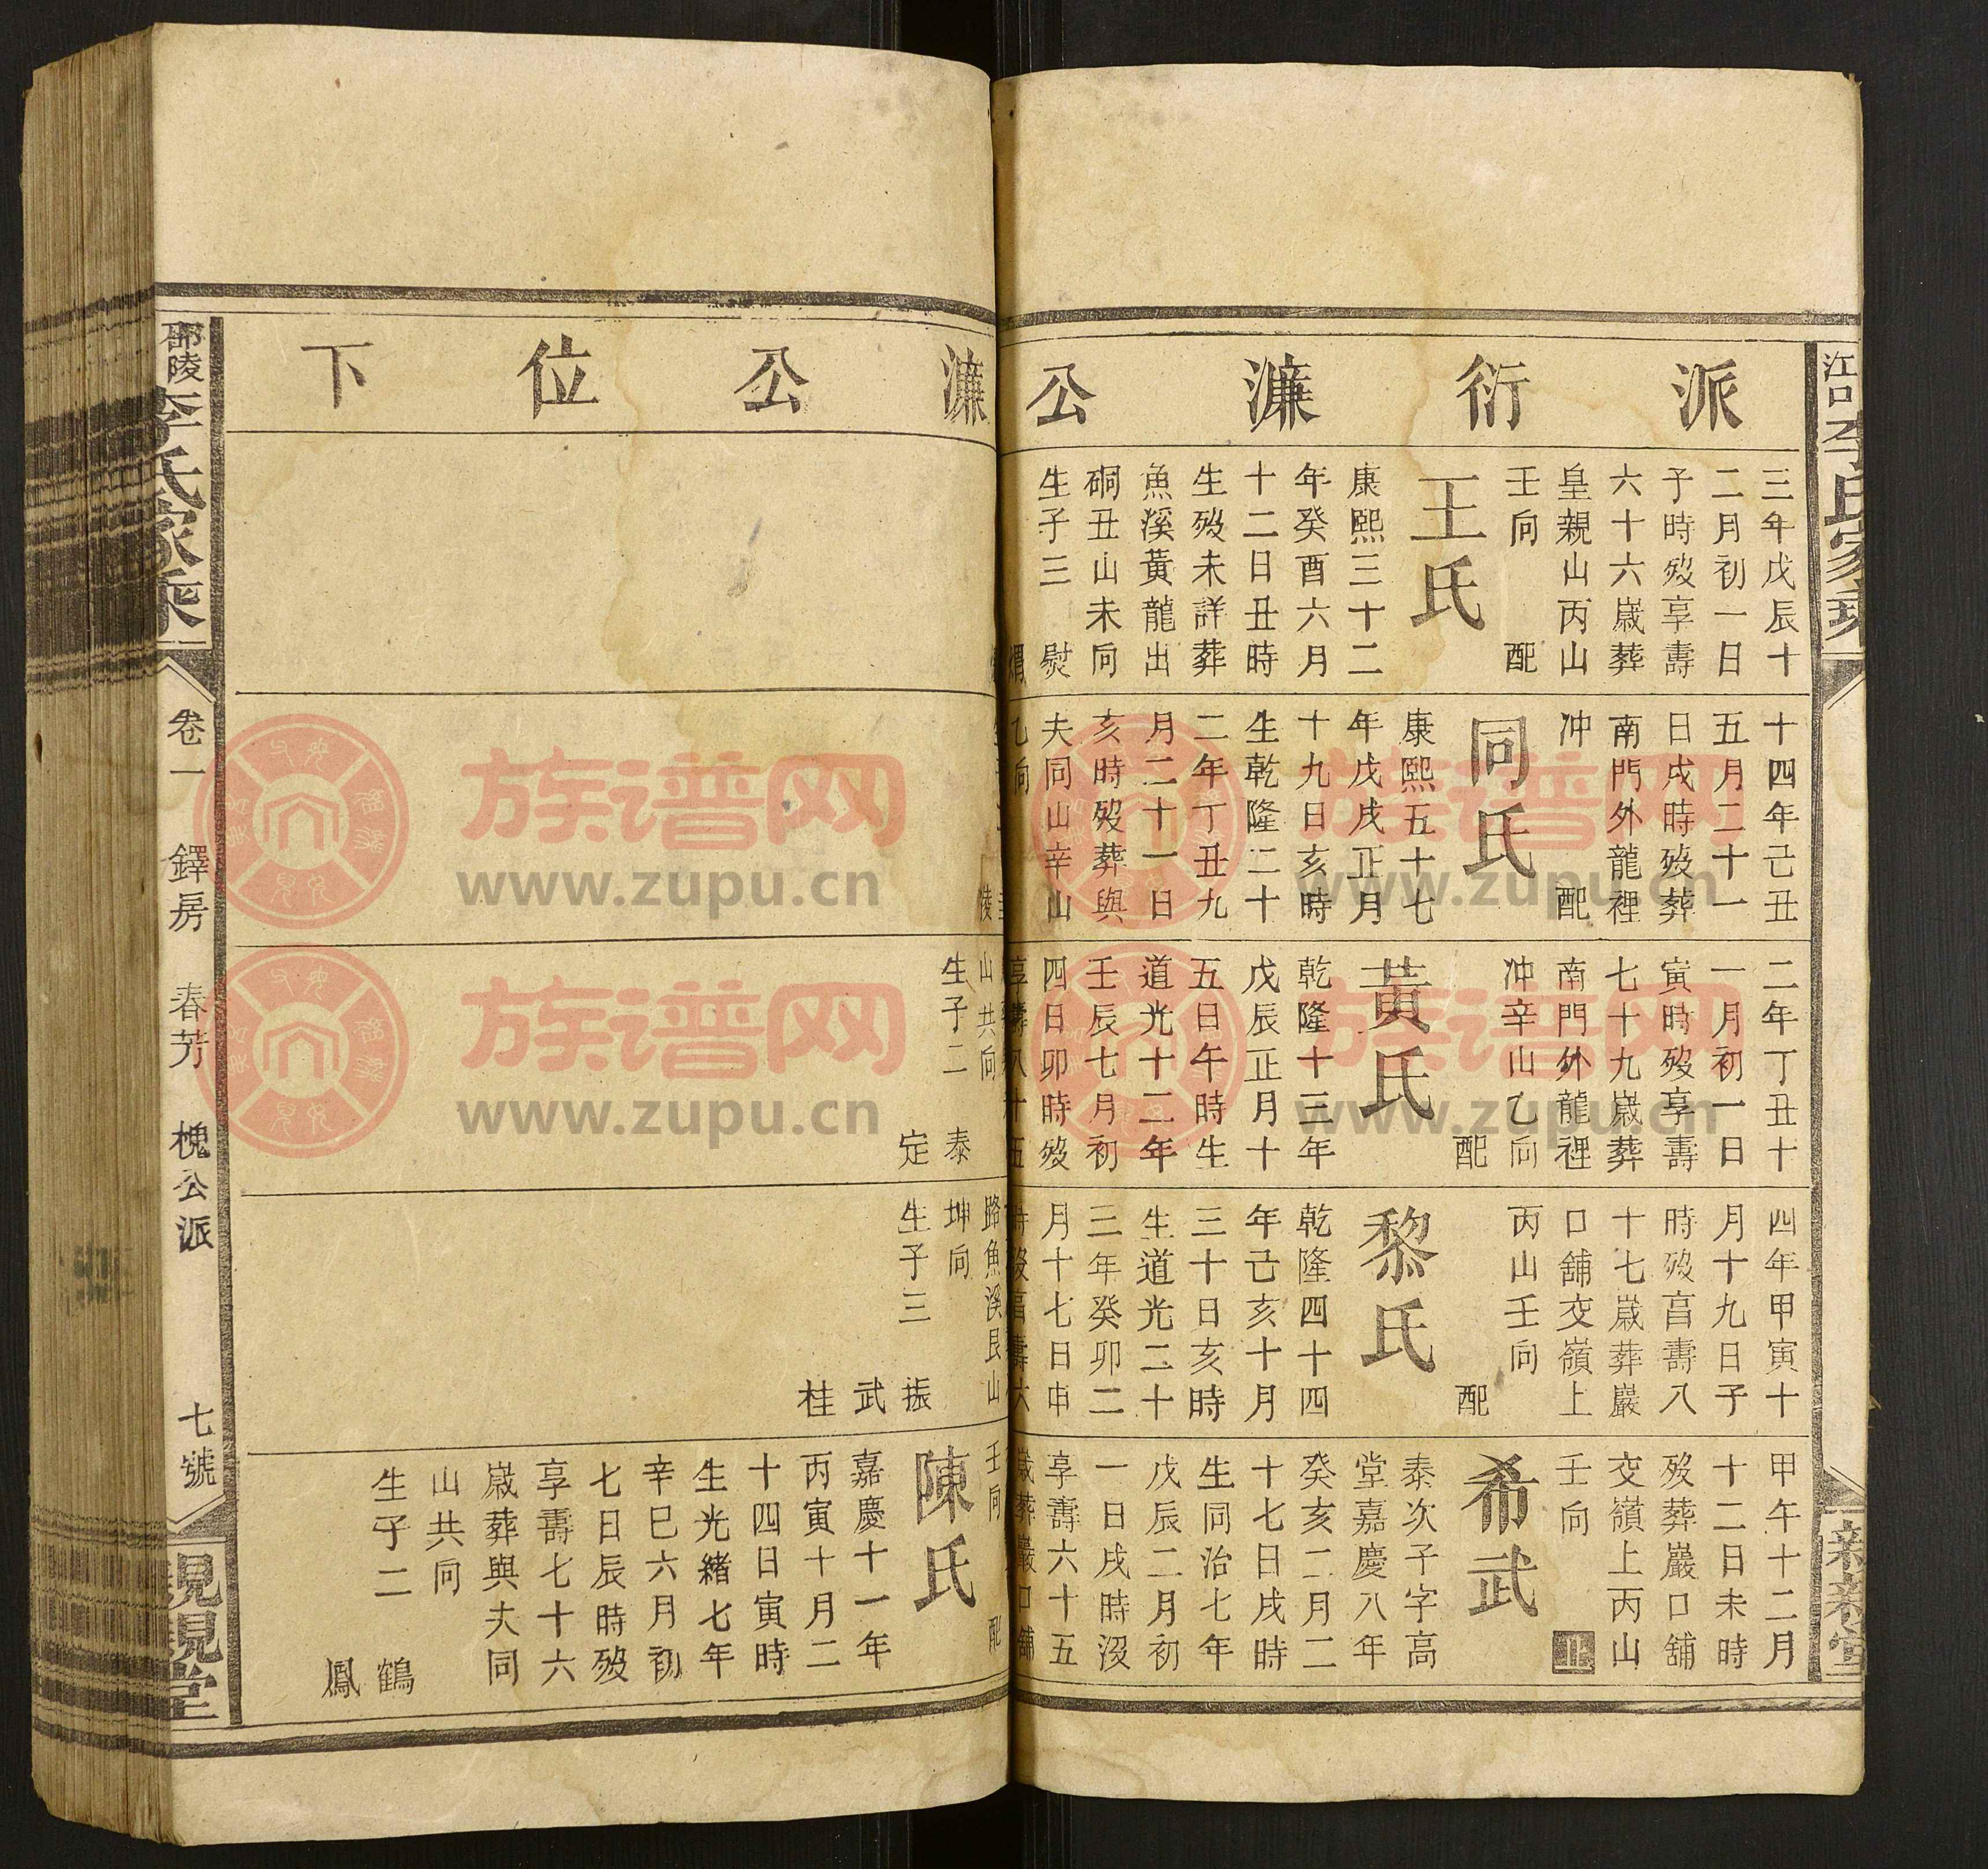 派衍濂公
三年戊辰十
二月初一日
子時歿享壽
六十六歲葬
皇親山丙山
壬向 配
王氏
康熙三十二
年癸酉六月
十二日丑時
生歿未詳葬
魚溪黃龍出
硐丑山未向
生子三 熨
十四年己丑
五月二十一
日戌時歿葬
南門外龍裡
冲 配
同氏
康熙五十七
年戊戌正月
十九日亥時
生乾隆二十
二年丁丑九
月二十一日
亥時歿葬與
夫同山辛山
乙向
二年丁丑十
一月初一日
寅時歿享壽
七十九歲葬
南門外龍裡
冲辛山乙向
配
黃氏
乾隆十三年
戊辰正月十
五日午時生
道光十二年
壬辰七月初
四日卯時歿
享壽八十五
四年甲寅十
月十九日子
時歿享壽八
十七歲葬巖
口舖交嶺上
丙山壬向
配
黎氏
乾隆四十四
年己亥十月
三十日亥時
生道光二十
三年癸卯二
月十七日申
時歿享壽六
甲午十二月
十二日未時
歿葬巖口舖
交嶺上丙山
壬向
希武
泰次子字高
堂嘉慶八年
癸亥二月二
十七日戌時
生同治七年
戊辰二月初
一日戌時沒
享壽六十五
歲葬巖口舖
江口李氏家乘
親親堂
濂公位下
山共向
生子二 泰
定
路魚溪艮山
坤向
生子三 振
武
桂
壬向 配
陳氏
嘉慶十一年
丙寅十月二
十四日寅時
生光緒七年
辛巳六月初
七日辰時歿
享壽七十六
歲葬與夫同
山共向
生子二 鶴
鳳
邵陵李氏家乘
卷一 鐸房 春芳 槐公派 七號
親親堂
族谱网
www.zupu.cn
族谱网
www.zupu.cn
族谱网
www.zupu.cn
族谱网
www.zupu.cn